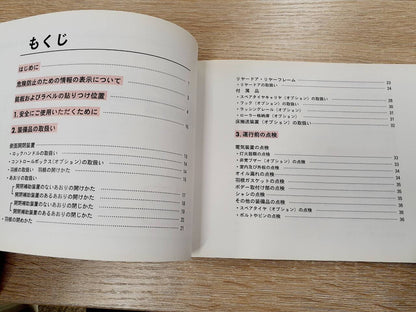 もくじ
はじめに 1
危険防止のための情報の表示について 3
銘板およびラベルの貼りつけ位置 4
1.安全にご使用いただくために
2.装備品の取扱い 16
側面開閉装置
・ロックハンドルの取扱い
・コントロールボックス(オプション)の取扱い
・羽根の取扱い 羽根の開けかた
・あおりの取扱い
開閉補助装置のないあおりの開けかた
開閉補助装置のあるあおりの開けかた
開閉補助装置のないあおりの閉じかた
開閉補助装置のあるあおりの閉じかた
・羽根の閉めかた 21
リヤードア・リヤーフレーム
・リヤードアの取扱い 23
付属品 24
・スペアタイヤキャリヤ(オプション)の取扱い
・フック(オプション)の取扱い
・ラッシングレール(オプション)の取扱い
・ローラー格納庫(オプション)
床搬送装置(オプション)の取扱い
3.運行前の点検
電気装置の点検
・灯火器類の点検
・非常ブザー(オプション)の点検
・室内及び外板の点検
オイル漏れの点検
羽根ガスケットの点検
ボデー取付け部の点検
シャシの点検
その他の装備品の点検
・スペアタイヤ(オプション)の点検
・ボルトやピンの点検 36